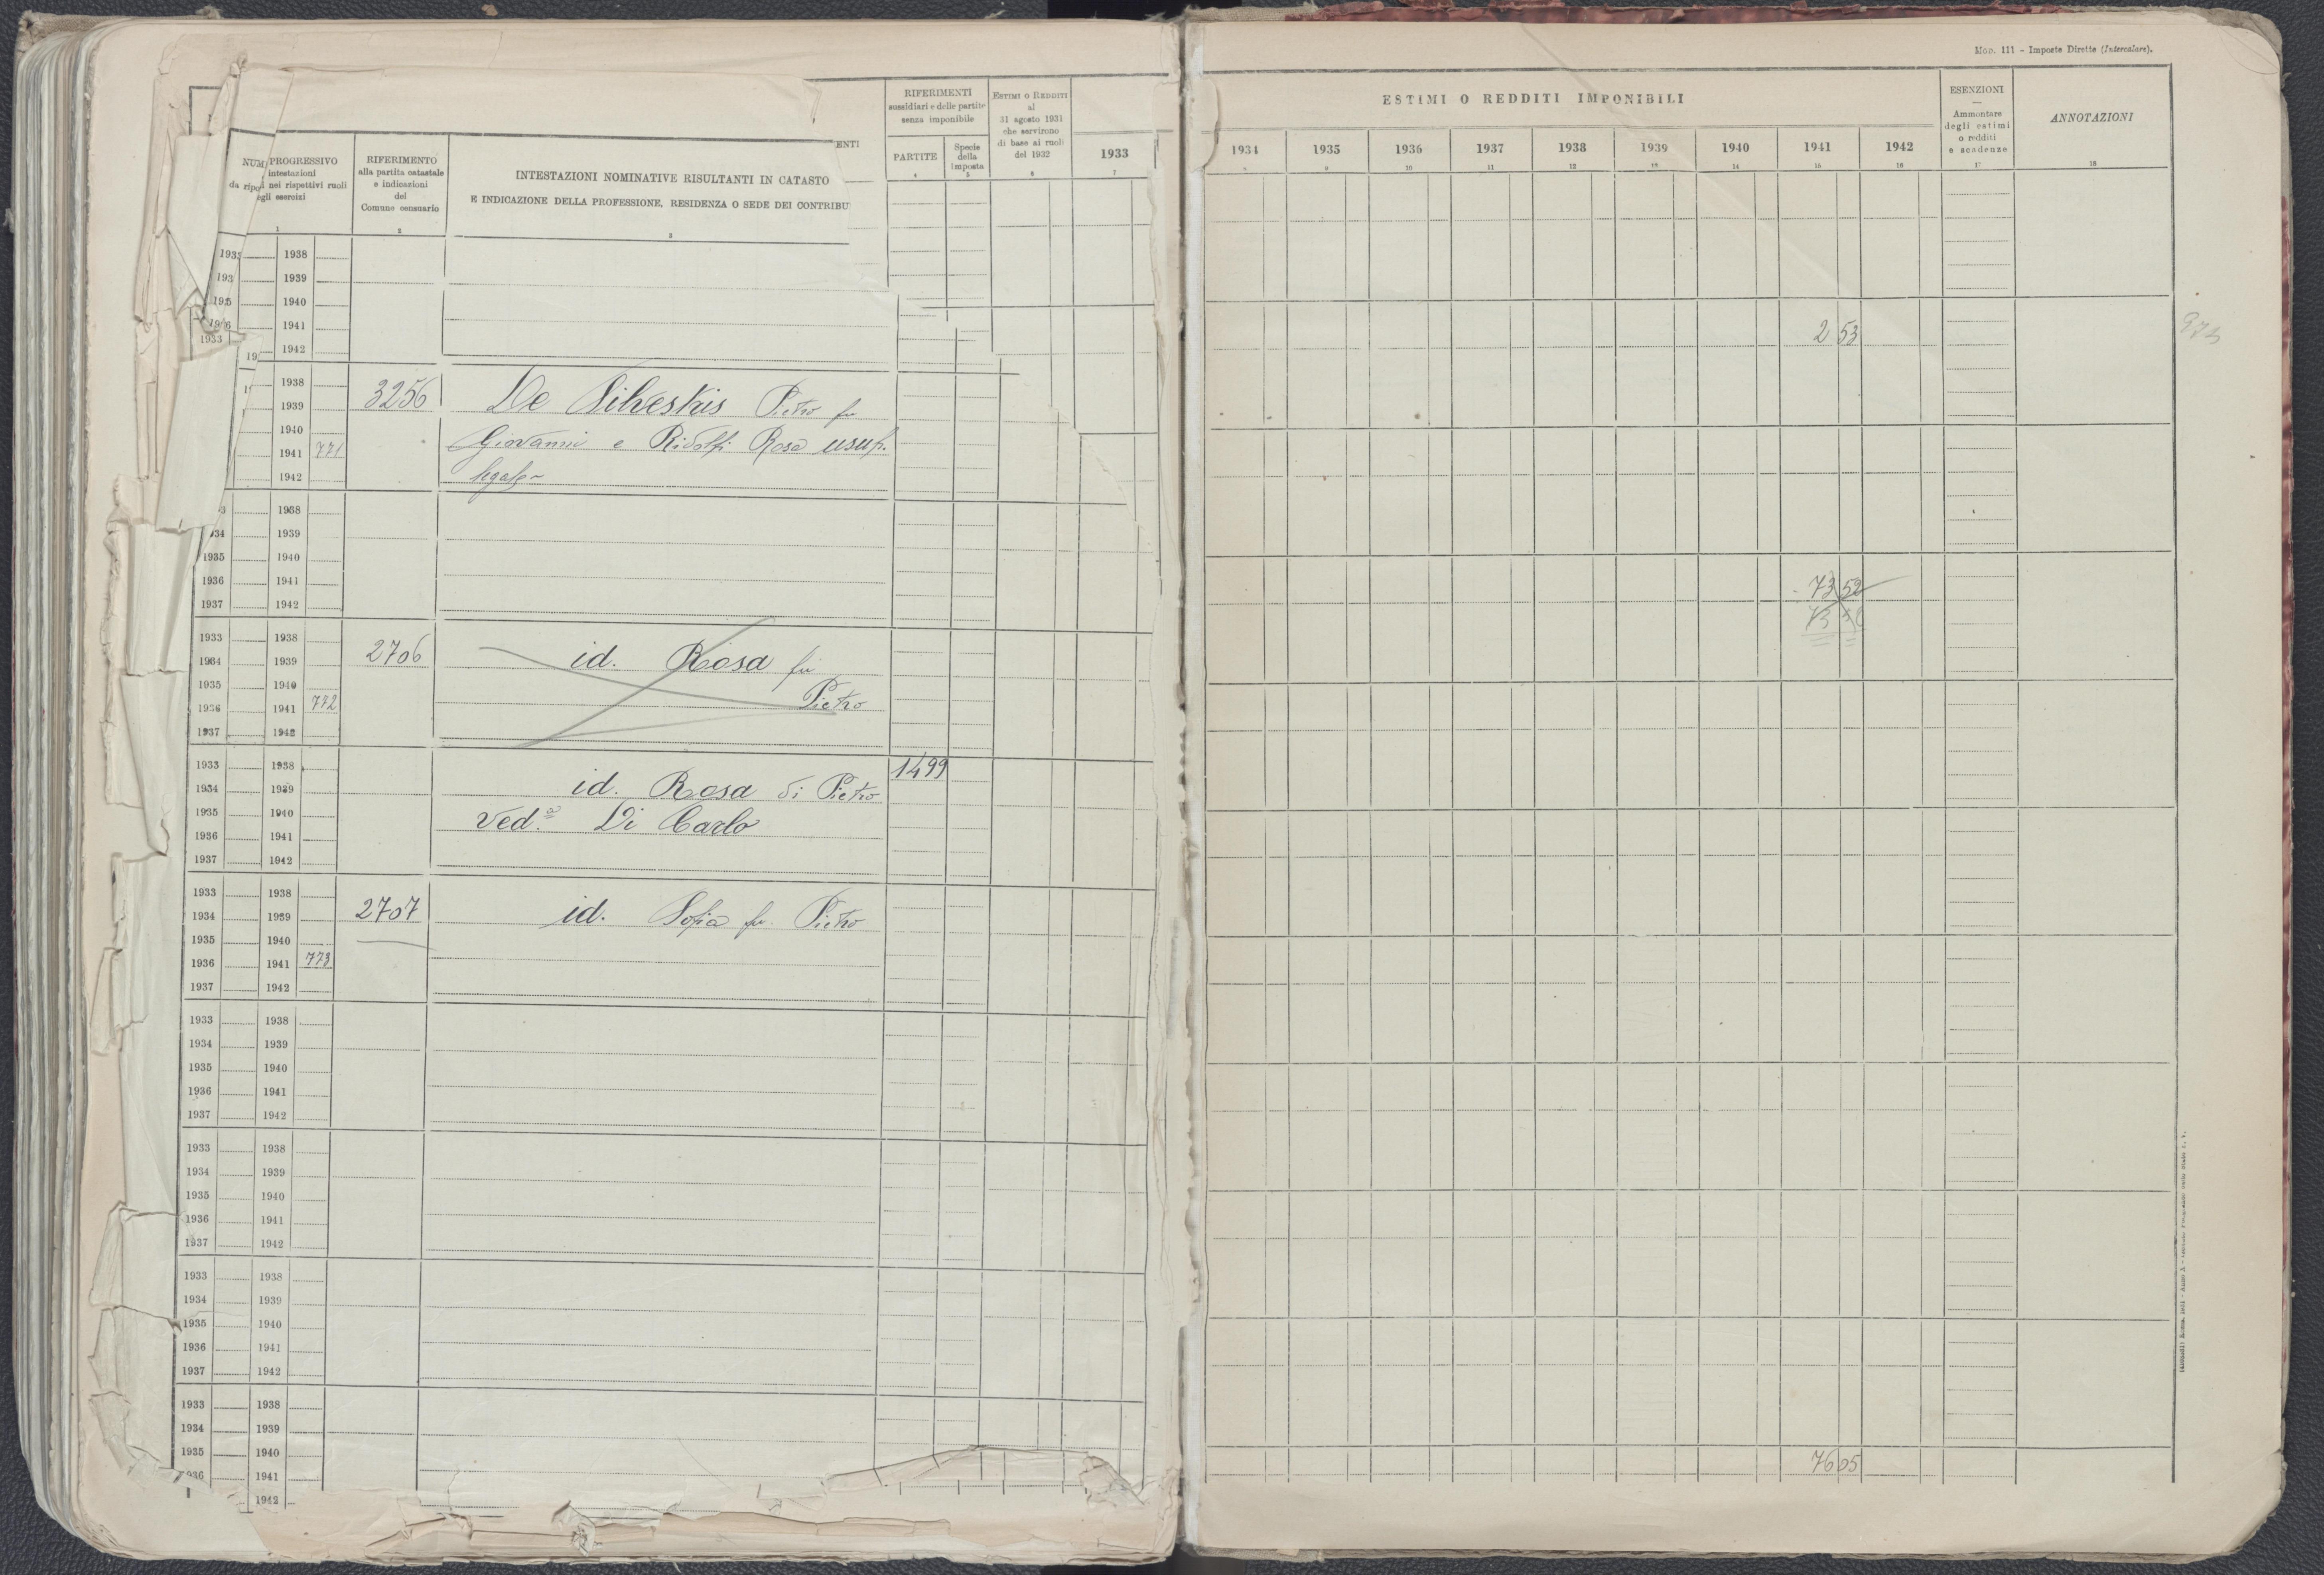 Mod. 111 - Imposte Dirette (Intercalare).
NUM PROGRESSIVO
intestazioni
da ripo i nei rispettivi ruoli
egli esercizi
1
RIFERIMENTO
alla partita catastale
e indicazioni
del
Comune censuario
2
INTESTAZIONI NOMINATIVE RISULTANTI IN CATASTO
E INDICAZIONE DELLA PROFESSIONE, RESIDENZA O SEDE DEI CONTRIBU
ENTI
3
RIFERIMENTI
sussidiari e delle partite
senza imponibile
PARTITE
4
Specie
della
imposta
5
ESTIMI O REDDITI
al
31 agosto 1931
che servirono
di base ai ruoli
del 1932
6
1933
7
ESTIMI O REDDITI IMPONIBILI
1934 1935 1936 1937 1938 1939 1940 1941 1942
8 9 10 11 12 13 14 15 16
ESENZIONI
—
Ammontare
degli estimi
o redditi
e scadenze
17
ANNOTAZIONI
18
193 1938
193 1939
195 1940
1941
1933
19 1942
2 53
1938
3256 De Silvestris Pietro fu
1939
1940
Giovanni e Ridolfi Rosa usuf.
1941 771
1942
legale
1938
34 1939
1935 1940
1936 1941
1937 1942
73 52
1933 1938
2706 id. Rosa fu
1934 1939
1935 1940
1936 1941 772
Pietro
1937 1942
1933 1938
1499
1934 1939
id. Rosa di Pietro
1935 1940
Ved.a Di Carlo
1936 1941
1937 1942
1933 1938
1934 1939
2707 id. Sofia fu Pietro
1935 1940
1936 1941 773
1937 1942
1933 1938
1934 1939
1935 1940
1936 1941
1937 1942
1933 1938
1934 1939
1935 1940
1936 1941
1937 1942
1933 1938
1934 1939
1935 1940
1936 1941
1937 1942
1933 1938
1934 1939
1935 1940
936 1941
1942
76 05